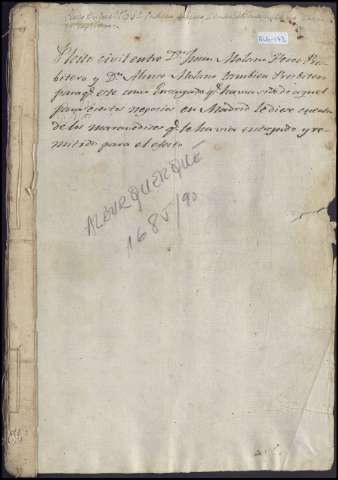 ALB-152
Pleito civil entre Dn. Juan Molano Perez Pres-
bitero y Dn. Alonso Molano tambien Presbitero
para qe. este como encargado qe. havia sido de aquel
para ciertos negocios en Madrid le diese cuenta
de los maravedises qe. le havia entregado y re-
mitido para el efecto
ALBURQUERQUÉ
1685/90